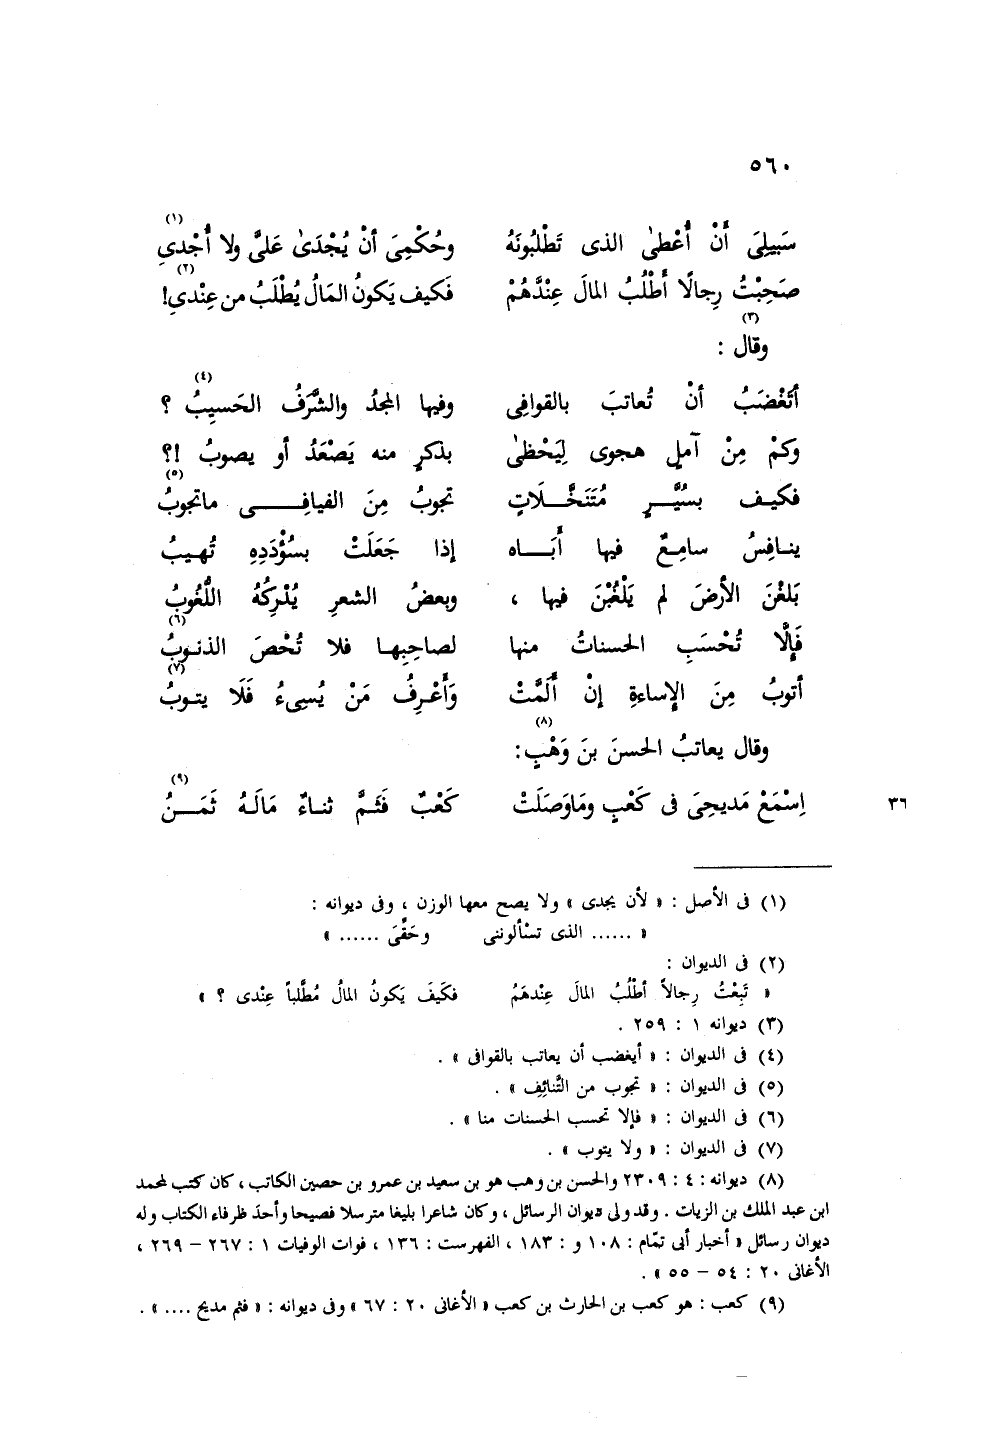 ٥٦٠
سَبيلِىَ أَنْ أُعْطىٰ الذى تَطْلبُونَهُ وحُكْمِىَ أنْ يُجْدَىٰ عَلىَّ ولا أُجْدِى (١)
صَحِبْتُ رِجالًا أَطْلُبُ المالَ عِنْدَهُمْ فَكيف يَكونُ المَالُ يُطْلَبُ من عِنْدى! (٢)
وقال (٣) :
أتَغْضَبُ أنْ تُعاتبَ بالقوافِى وفيها المجدُ والشَّرَفُ الحَسيِبُ (٤) ؟
وكمْ مِنْ آملٍ هجوى لِيَحْظىٰ بذكرٍ منه يَصْعَدُ أو يصوبُ !؟
فكيف بسُيَّرٍ مُتَنَخَّلَاتٍ تجوبُ مِنَ الفيافِى ماتجوبُ (٥)
ينافِسُ سامِعٌ فيها أَبَاه إذا جَعَلَتْ بسُؤْدَدِهِ تُهيبُ
بَلغْنَ الأرضَ لم يَلْغُبْنَ فيها ، وبعضُ الشعرِ يُدْرِكُهُ اللُّغُوبُ
فَإِلَّا تُحْسَبِ الحسناتُ منها لصاحِبِها فلا تُحْصَ الذنوبُ (٦)
أتوبُ مِنَ الإساءةِ إنْ أَلَمَّتْ وَأَعْرِفُ مَنْ يُسِىءُ فَلَا يتوبُ (٧)
وقال يعاتبُ الحسنَ بنَ وَهْبٍ (٨) :
٣٦ اِسْمَعْ مَديحِىَ فى كَعْبٍ ومَاوَصَلَتْ كَعْبٌ فَثَمَّ ثناءٌ مَالَهُ ثَمَنُ (٩)
(١) فى الأصل : « لأن يجدى » ولا يصح معها الوزن ، وفى ديوانه :
« ...... الذى تسْألوننى وحَقِّىَ ...... »
(٢) فى الديوان :
« تَبِعْتُ رِجالاً أطْلُبُ المالَ عِندهَمُ فكَيفَ يَكونُ المالُ مُطَّلباً عِندى ؟ »
(٣) ديوانه ١ : ٢٥٩ .
(٤) فى الديوان : « أيغضب أن يعاتب بالقوافى » .
(٥) فى الديوان : « تجوب من التَّنائِف » .
(٦) فى الديوان : « فإلا تحسب الحسنات منا » .
(٧) فى الديوان : « ولا يتوب » .
(٨) ديوانه : ٤ : ٢٣٠٩ والحسن بن وهب هو بن سعيد بن عمرو بن حصين الكاتب ، كان كتب لمحمد
ابن عبد الملك بن الزيات . وقد ولى ديوان الرسائل ، وكان شاعرا بليغا مترسلا فصيحا وأحد ظرفاء الكتاب وله
ديوان رسائل « أخبار أبى تمّام : ١٠٨ و : ١٨٣ ، الفهرست : ١٣٦ ، فوات الوفيات ١ : ٢٦٧ – ٢٦٩ ،
الأغانى ٢٠ : ٥٤ – ٥٥ » .
(٩) كعب : هو كعب بن الحارث بن كعب « الأغانى ٢٠ : ٦٧ » وفى ديوانه : « فثم مديح .... » .